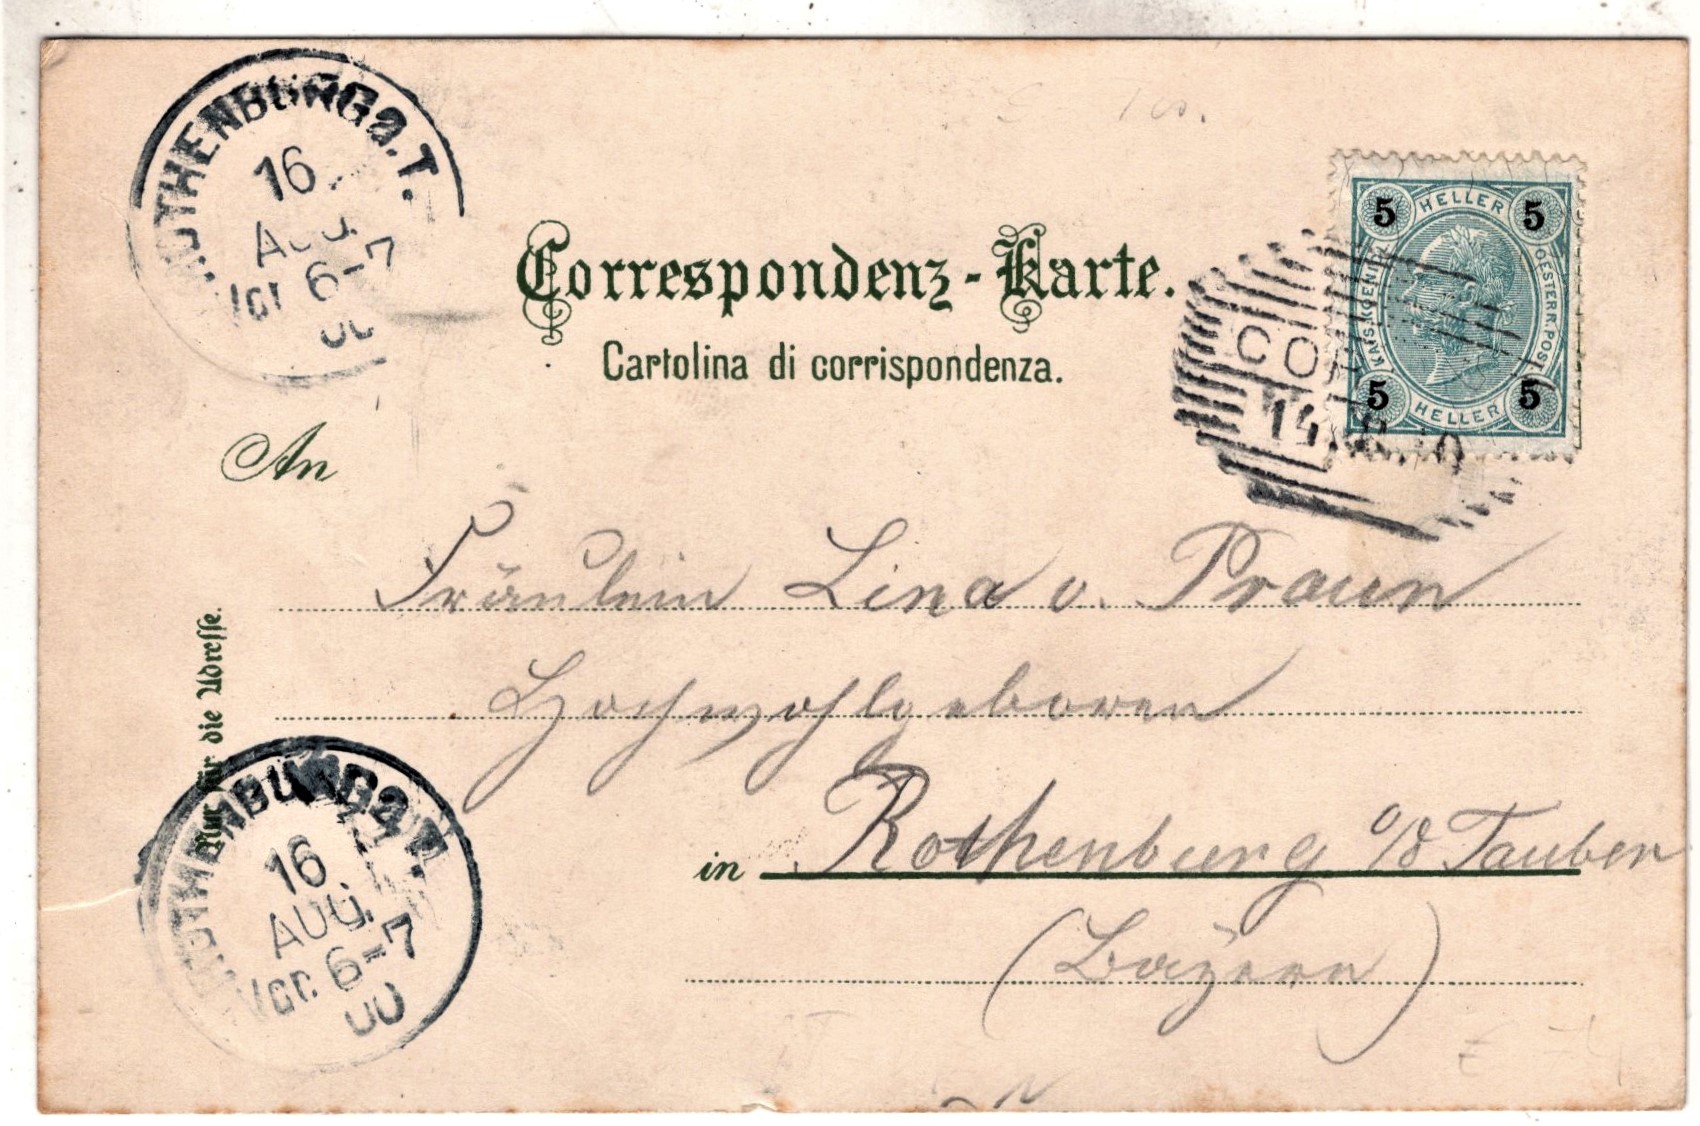 ROTHENBURG a.T.
16
AUG.
Vor. 6-7
00
Correspondenz-Karte.
Cartolina di corrispondenza.
5 HELLER 5
KAIS. KOENIGL. OESTERR. POST
5 HELLER 5
COR
14.8.00
An
Fräulein Lina v. Praun
Hochwohlgeboren
in Rothenburg o/d Tauber
(Bayern)
Nur für die Adresse.
ROTHENBURG a.T.
16
AUG.
Vor. 6-7
00